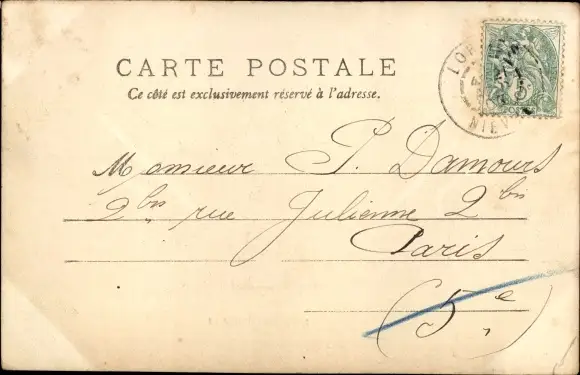 CARTE POSTALE
Ce côté est exclusivement réservé à l'adresse.
Monsieur P. Damours
2bis rue Julienne 2bis
Paris
(5e)
LOR
NIEV
5